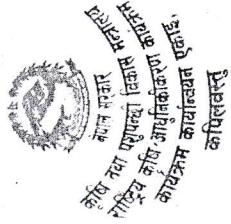 नेपाल सरकार
कृषि तथा पशुपन्छी विकास मन्त्रालय
राष्ट्रिय कृषि आधुनिकीकरण कार्यक्रम
कार्यक्रम कार्यान्वयन एकाई,
कपिलवस्तु